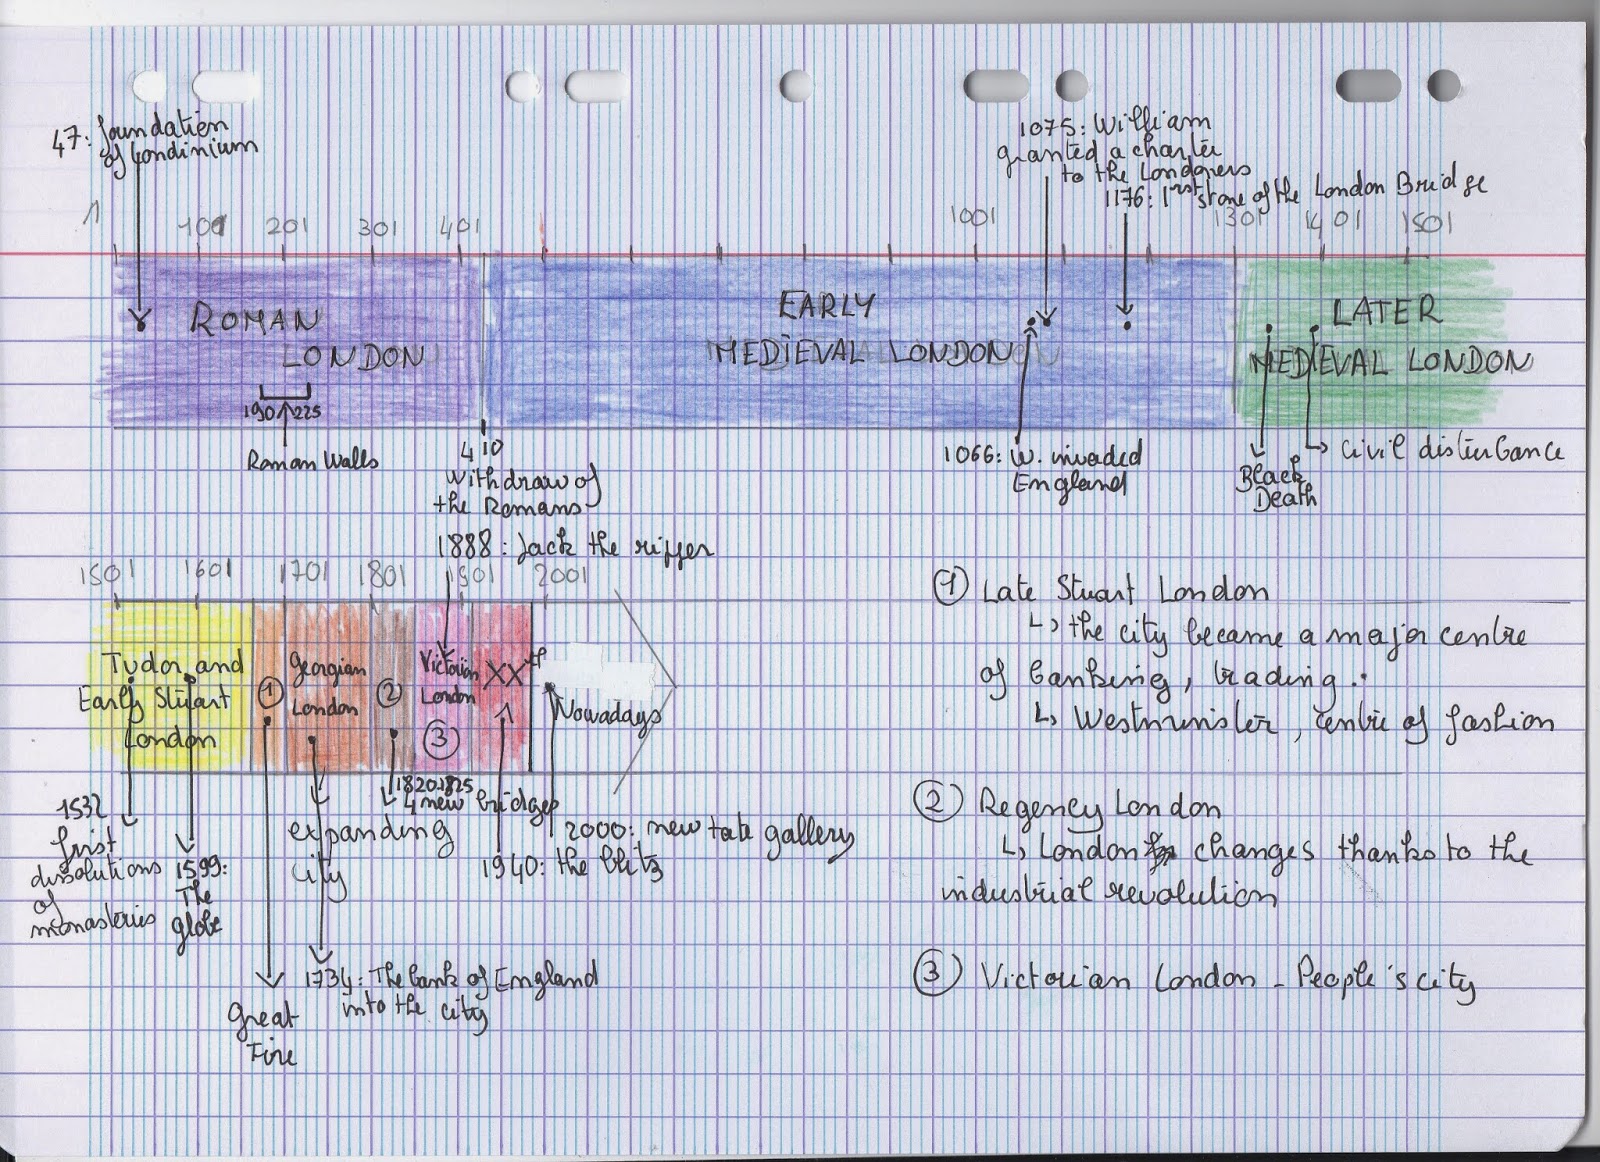 47: foundation
of Londinium
1075: William
granted a charter
to the Londoners
1176: 1rst stone of the London Bridge
1 101 201 301 401 1001 1301 1401 1501
ROMAN
LONDON
EARLY
MEDIEVAL LONDON
LATER
MEDIEVAL LONDON
190 225
Roman Walls
410
withdraw of
the Romans
1066: W. invaded
England
Black
Death
civil disturbance
1888: Jack the ripper
1501 1601 1701 1801 1901 2001
Tudor and
Early Stuart
London
1
Georgian
London
2
Victorian
London
3
XXth
Nowadays
1532
first
dissolutions
of
monasteries
1599:
The
globe
Great
Fire
expanding
city
1734: The bank of England
into the city
1820.1825
4 new bridges
1940: the blitz
2000: new tate gallery
1 Late Stuart London
the city became a major centre
of banking, trading..
Westminster, centre of fashion
2 Regency London
London changes thanks to the
industrial revolution
3 Victorian London - People's city